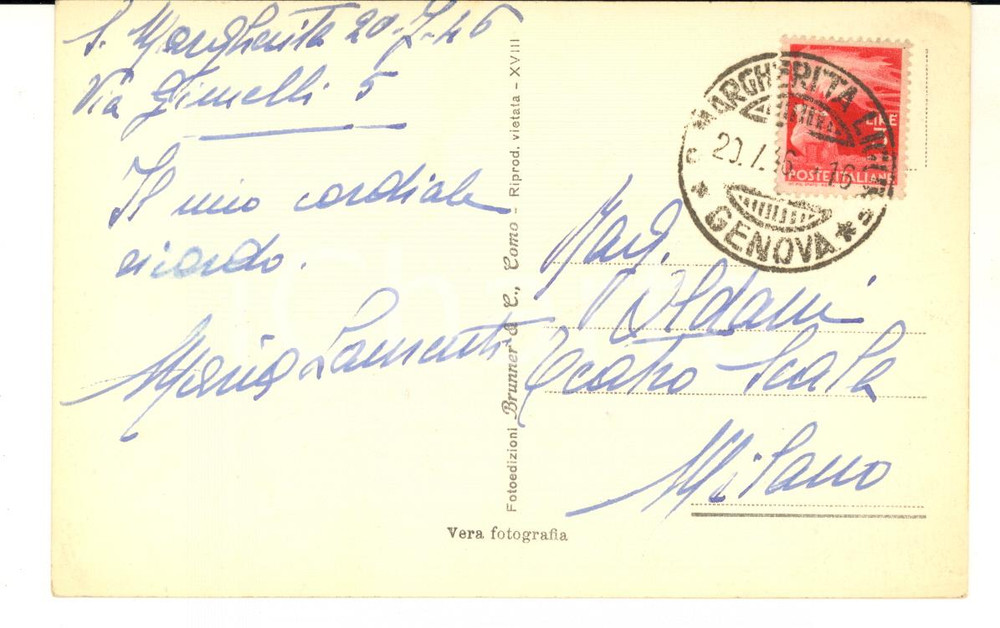 S. Margherita 20-7-46
Via Gimelli 5
Il mio cordiale
ricordo.
Maria Laurenti
Fotoedizioni Brunner & C., Como - Riprod. vietata - XVIII
S. MARGHERITA LIGURE
20.7.46 - 16
* GENOVA *
LIRE
POSTE ITALIANE
Mario
Teatro Scala
Milano
Vera fotografia